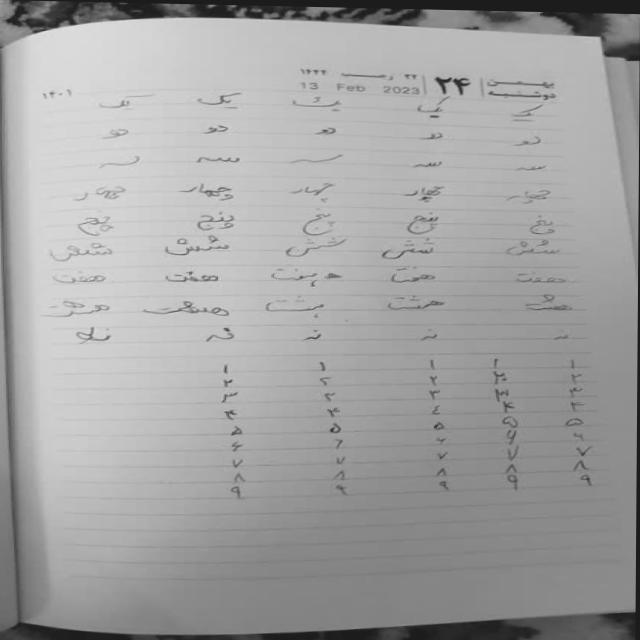 بهمن ۲۴ ۲۲ رجب ۱۴۴۴
دوشنبه 13 Feb 2023 ۱۴۰۱
یک یک یک یک یک
دو دو دو دو دو
سه سه سه سه سه
چهار چهار چهار چهار چهار
پنج پنج پنج پنج پنج
شش شش شش شش شش
هفت هفت هفت هفت هفت
هشت هشت هشت هشت هشت
نه نه نه نه
۱ ۱ ۱ ۱ ۱
۲ ۲ ۲ ۲ ۲
۳ ۳ ۳ ۳ ۳
۴ ۴ ۴ ۴ ۴
۵ ۵ ۵ ۵ ۵
۶ ۶ ۶ ۶ ۶
۷ ۷ ۷ ۷ ۷
۸ ۸ ۸ ۸ ۸
۹ ۹ ۹ ۹ ۹